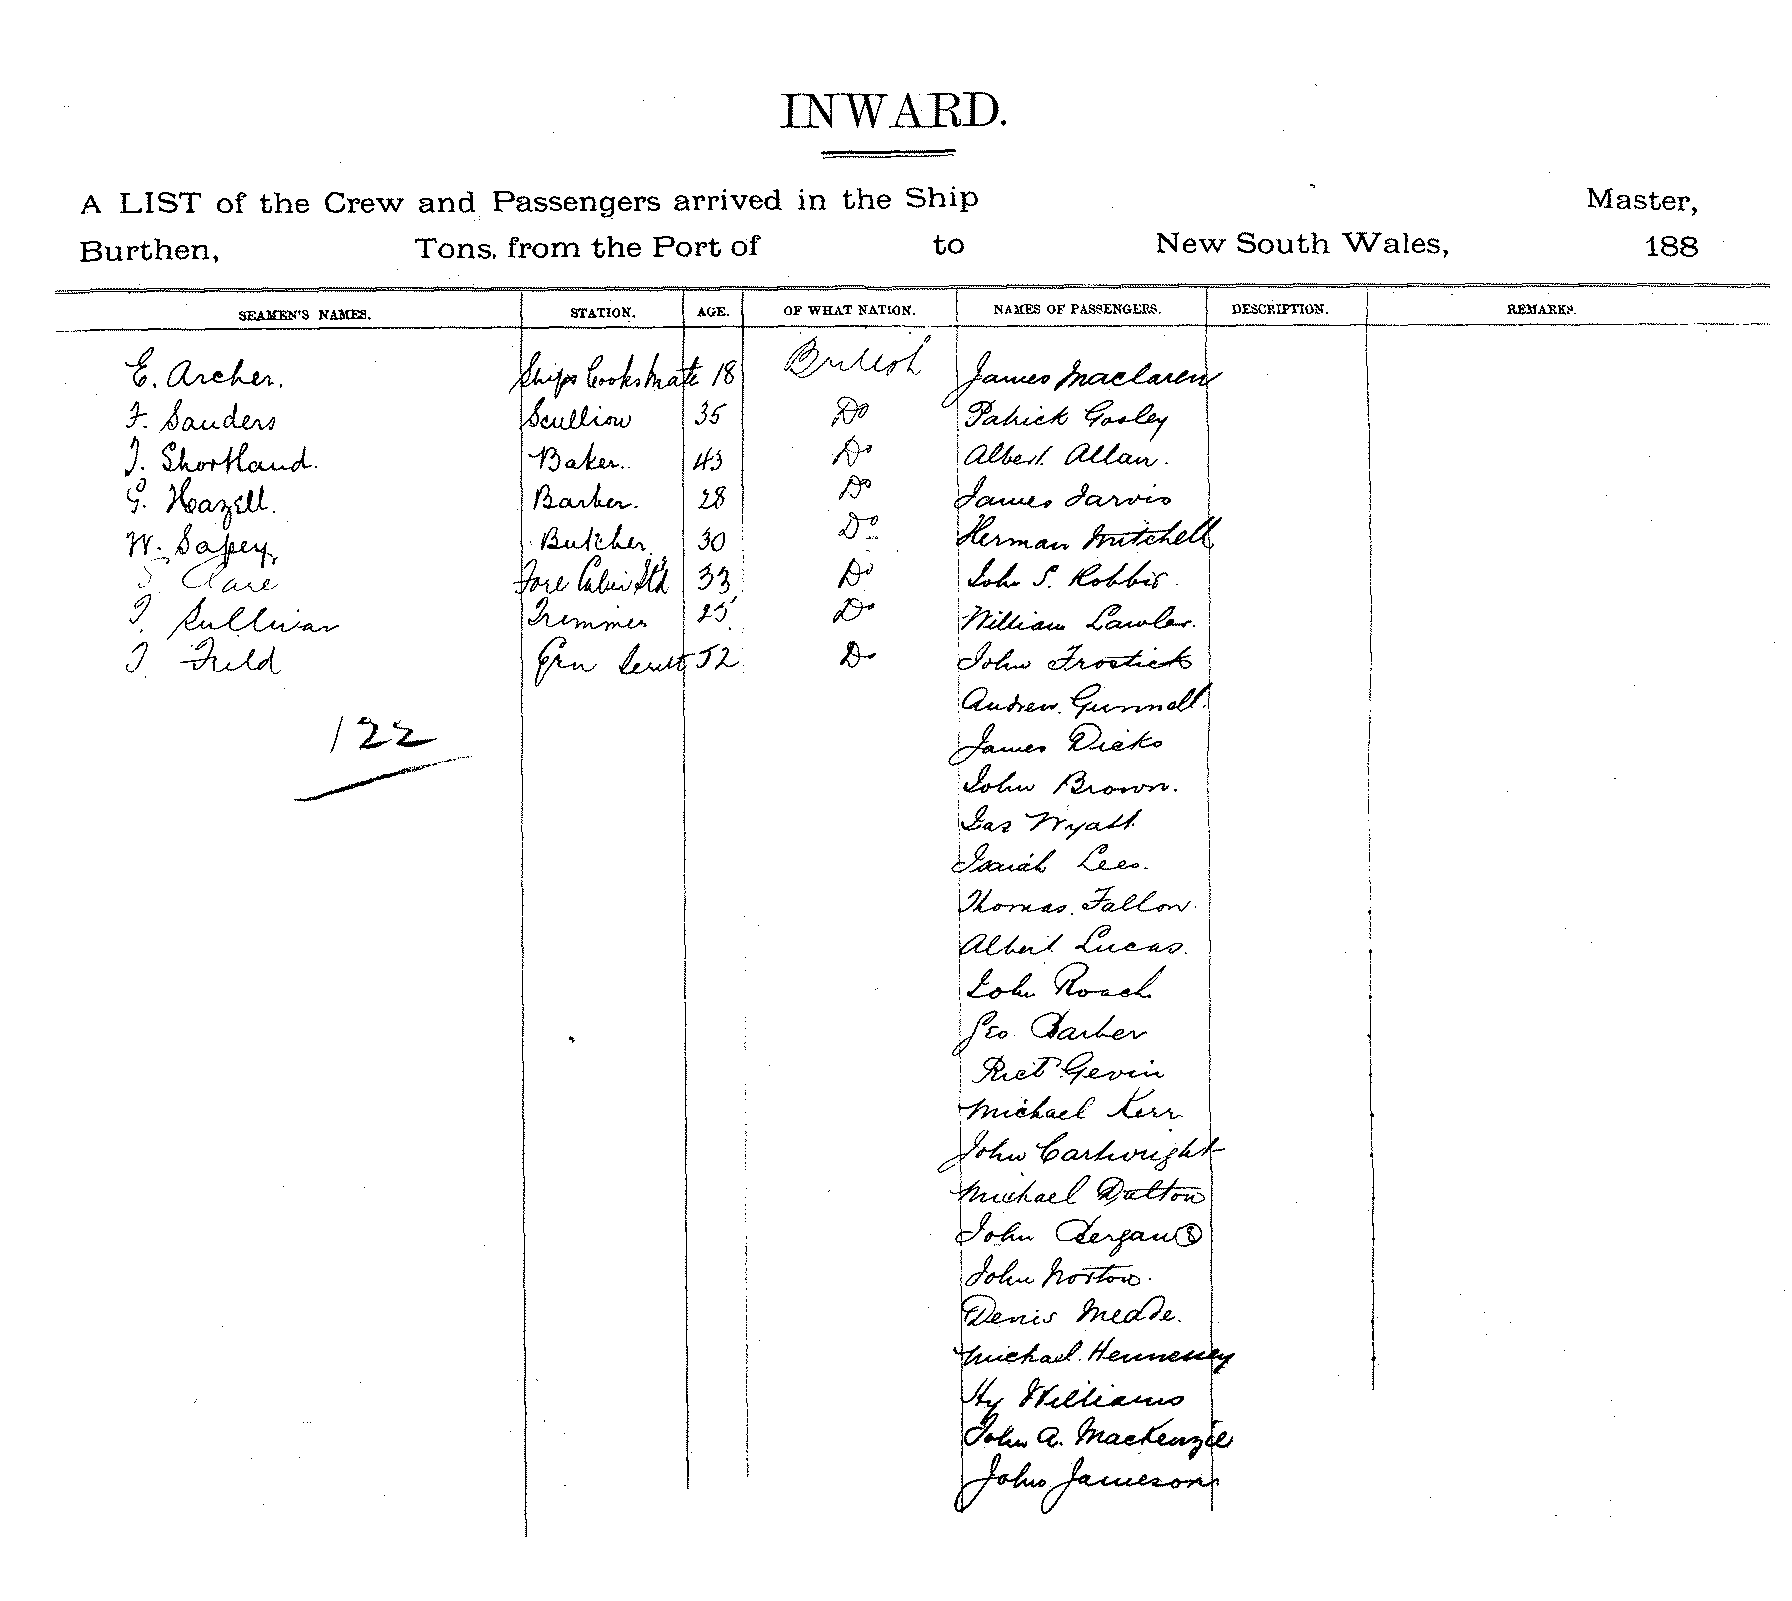 INWARD.
A LIST of the Crew and Passengers arrived in the Ship Master,
Burthen, Tons, from the Port of to New South Wales, 188
SEAMEN'S NAMES. STATION. AGE. OF WHAT NATION. NAMES OF PASSENGERS. DESCRIPTION. REMARKS.
E. Archer. Ships Cooks Mate 18 British James Maclaren
F. Sanders Scullion 35 Do Patrick Gooley
J. Shortland. Baker. 43 Do Albert Allan.
G. Hazell. Barber. 28 Do James Jarvis
W. Sapey. Butcher. 30 Do Herman Mitchell
Clare Fore Cabin Std 33 Do John S. Robbis.
T. Sullivan Trimmer 25 Do William Lawler.
J. Field 52 Do John Frostick
Andrew Gunnell.
122 James Dicks
John Brown.
Jas Wyatt
Isaiah Lees.
Thomas. Fallon.
Albert Lucas.
John Roach
Geo. Barber
Rict Gevin
Michael Kerr
John Cartwright
Michael Dalton
John
John Norton.
Denis Meade.
Michael. Hennessey
Hy Williams
John A. MacKenzie
John Jameson